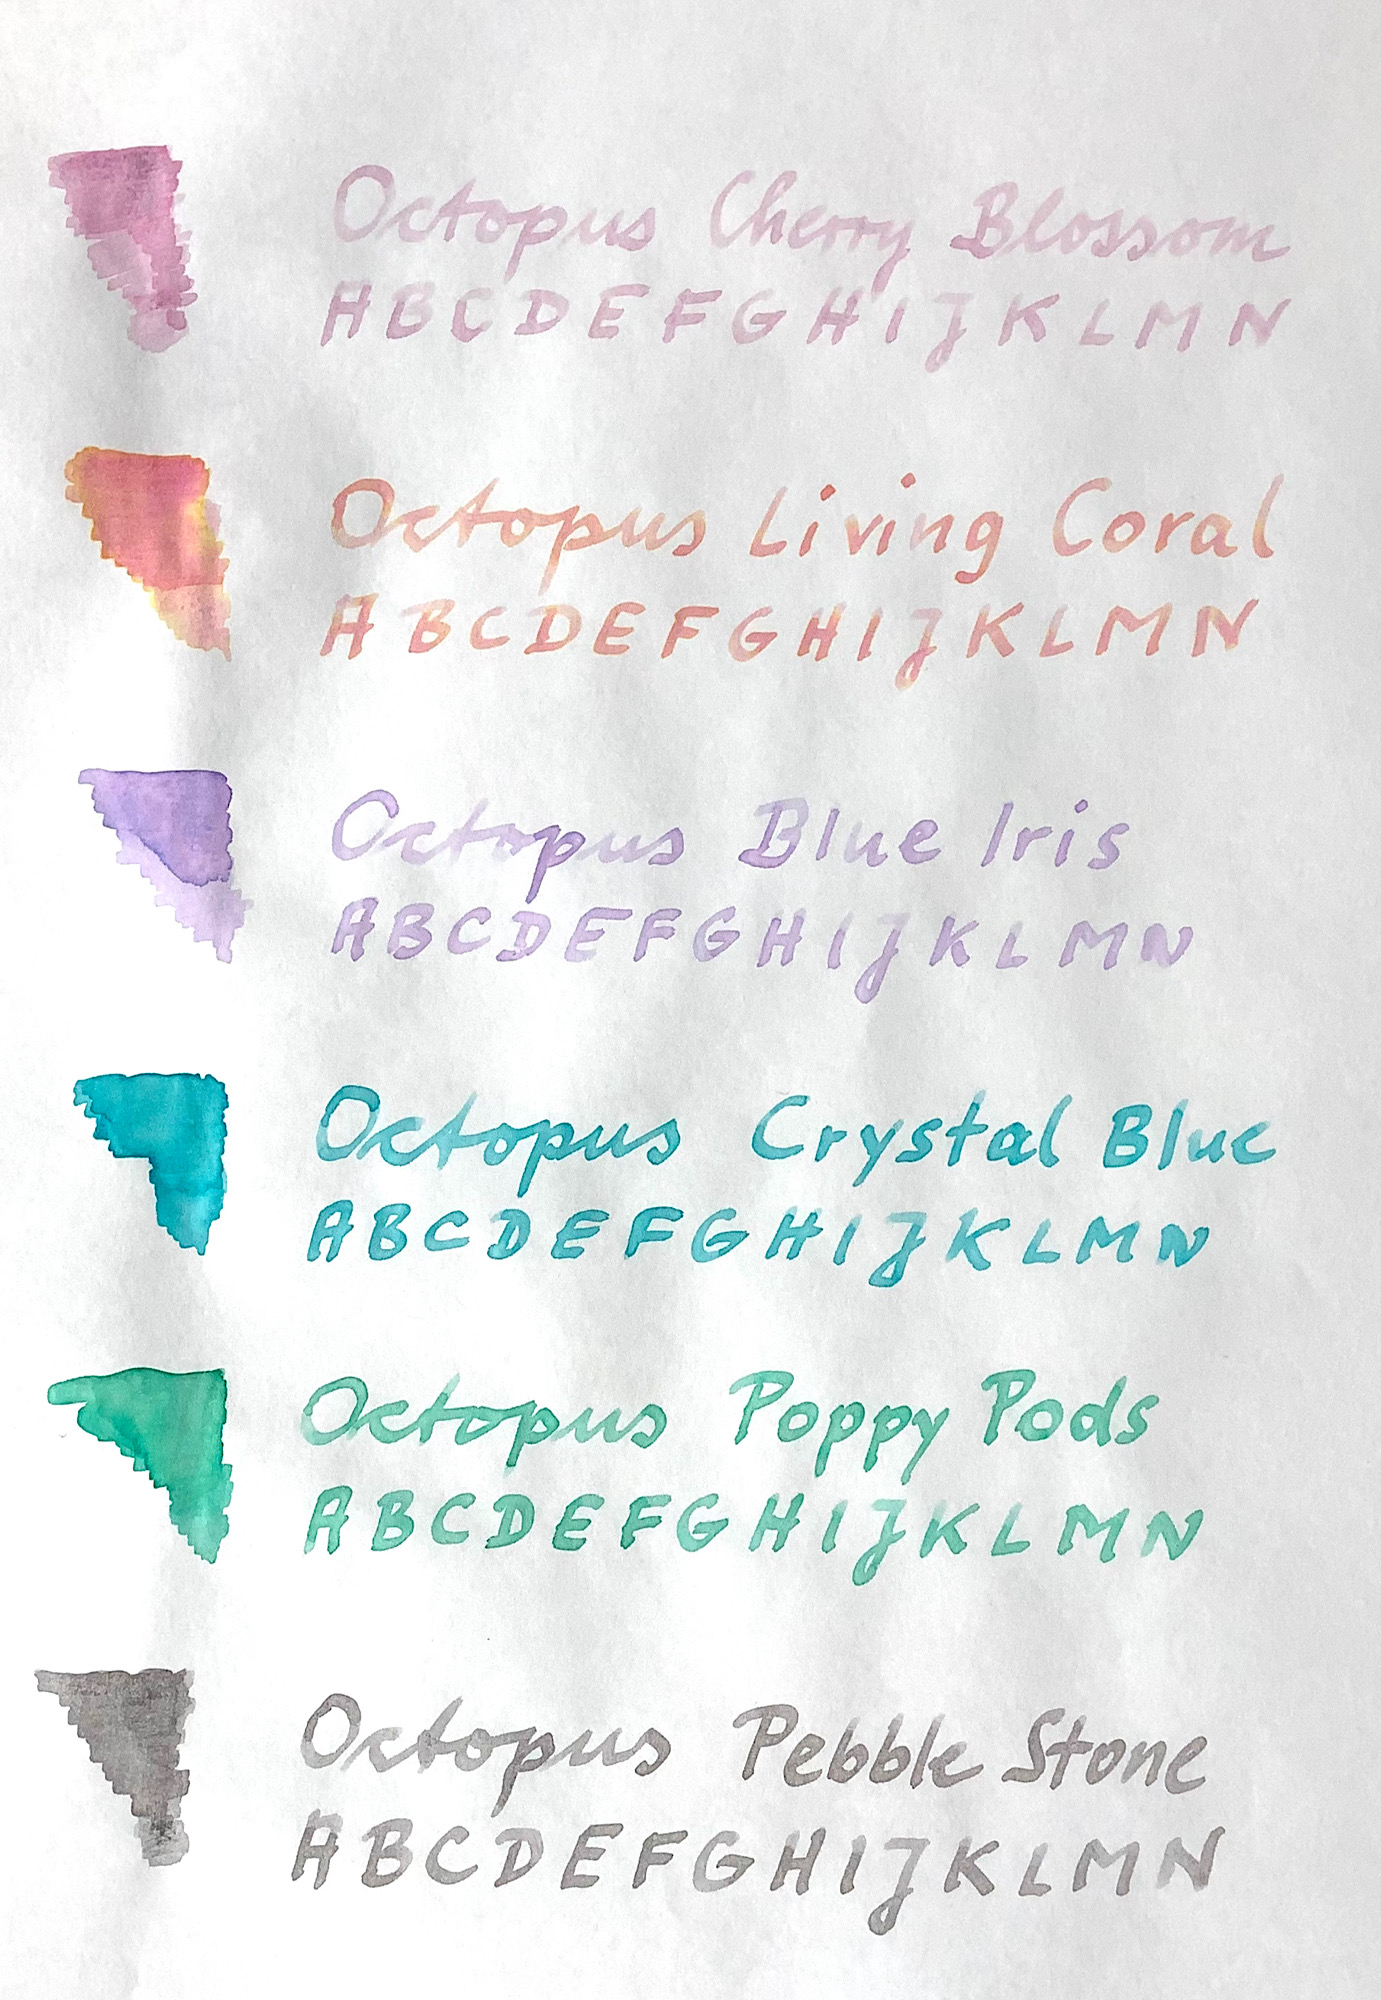 Octopus Cherry Blossom
ABCDEFGHIJKLMN
Octopus Living Coral
ABCDEFGHIJKLMN
Octopus Blue Iris
ABCDEFGHIJKLMN
Octopus Crystal Blue
ABCDEFGHIJKLMN
Octopus Poppy Pods
ABCDEFGHIJKLMN
Octopus Pebble Stone
ABCDEFGHIJKLMN